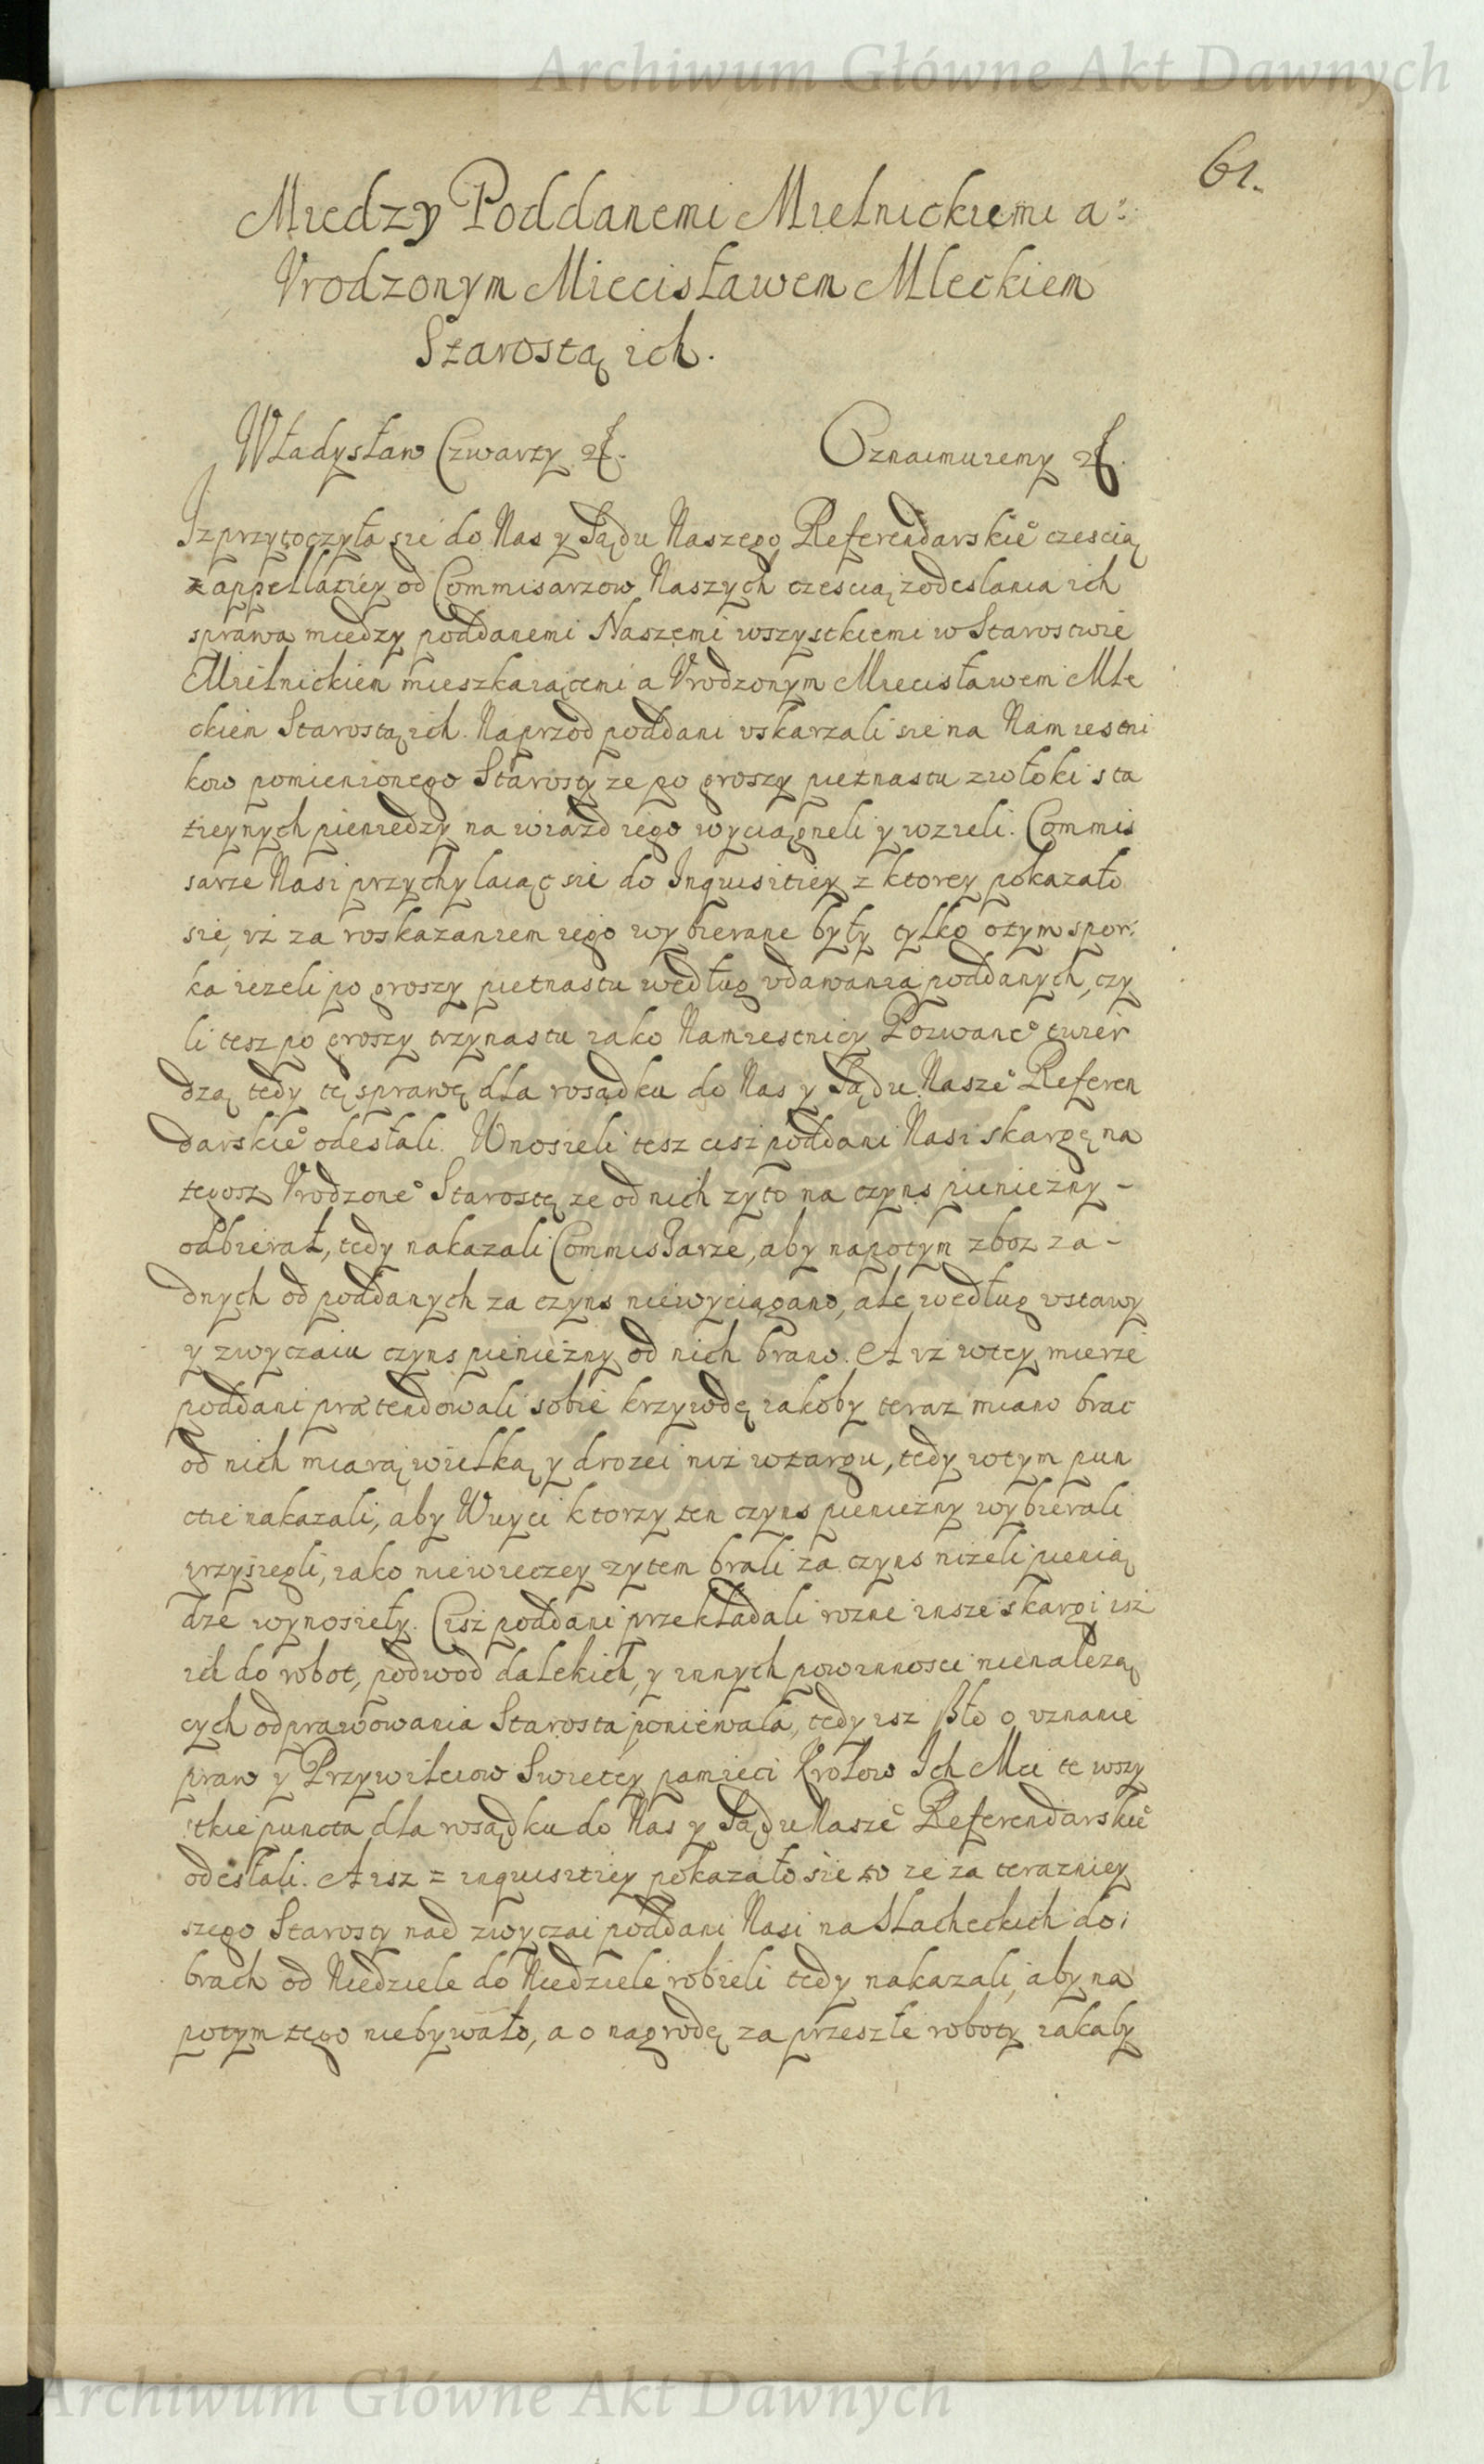 Archiwum Główne Akt Dawnych
61.
Miedzy Poddanemi Mielnickiemi a
Vrodzonym Miecisławem Mleckiem
Starostą ich.
Władysław Czwarty etc. Oznaimuiemy etc.
Iz przytoczyła sie do Nas y Sądu Naszego Referendarskie° czescią
z appellatiey od Commisarzow Naszych czescią z odeslania ich
sprawa miedzy poddanemi Naszemi wszystkiemi w Starostwie
Mielnickiem mieszkaiącemi a Vrodzonym Miecisławem Mle
ckiem Starostą ich. Naprzod poddani vskarzali sie na Namiestni
kow pomienionego Starosty ze po groszy pietnastu z włoki sta
tieynych pieniedzy na wiazd iego wyciągneli y wzieli. Commis
sarze Nasi przychylaiąc sie do Inquisitiey z ktorey pokazało
sie, iż za roskazaniem iego wybierane były tylko o tym spor:
ka iezeli po groszy pietnastu według vdawania poddanych, czy
li tesz po groszy trzynastu iako Namiestnicy Pozwane° twier
dzą tedy tę sprawę dla rosądku do Nas y Sądu Nasze° Referen
darskie° odesłali. Wnosieli tesz cisz poddani Nasi skargę na
tegosz Vrodzone° Starostę ze od nich zyto na czyns pieniezny -
odbierał, tedy nakazali Commissarze, aby napotym zboz za -
dnych od poddanych za czyns niewyciągano, ale według vstawy
y zwyczaiu czyns pieniezny od nich brano. A iż w tey mierze
poddani prætendowali sobie krzywdę iakoby teraz miano brac
od nich miarą wielką y drozei niz w targu, tedy w tym pun
ctie nakazali, aby Wuyci ktorzy ten czyns pieniezny wybierali
przysiegli, iako niewieczey zytem brali za czyns nizeli pienią
dze wynosiely. Cisz poddani przekładali rozne insze skargi isz
ich do robot, podwod dalekich, y innych powinnosci nienalezą
cych odprawowania Starosta poniewala, tedy isz szło o vznanie
praw y Przywileiow Swietey pamieci Krolow Ich Mci te wszy
stkie puncta dla rosądku do Nas y Sądu Nasze° Referendarskie°
odesłali. A isz z inquisitiey pokazało sie to ze za terazniey
szego Starosty nad zwyczai poddani Nasi na Slacheckich do:
brach od Niedziele do Niedziele robieli tedy nakazali, aby na
potym tego niebywało, a o nagrodę za przeszłe roboty iakaby
Archiwum Główne Akt Dawnych